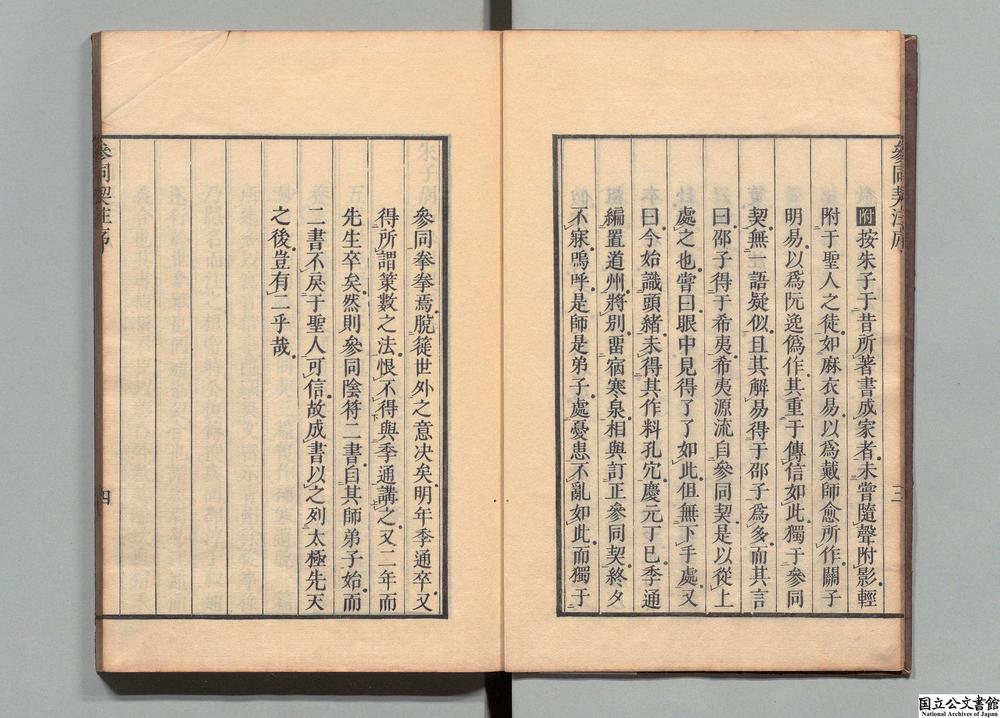 參同契注序
三
附按朱子于昔所著書成家者未嘗隨聲附影輕
附于聖人之徒如麻衣易以爲戴師愈所作關子
明易以爲阮逸僞作其重于傳信如此獨于參同
契無一語疑似且其解易得于邵子爲多而其言
曰邵子得于希夷希夷源流自參同契是以從上
處之也嘗曰眼中見得了了如此但無下手處又
曰今始識頭緒未得其作料孔穴慶元丁巳季通
編置道州將别畱宿寒泉相與訂正參同契終夕
不寐嗚呼是師是弟子處憂患不亂如此而獨于
參同拳拳焉脫蓰世外之意决矣明年季通卒又
得所謂策數之法恨不得與季通講之又二年而
先生卒矣然則參同陰符二書自其師弟子始而
二書不戾于聖人可信故成書以之列太極先天
之後豈有二乎哉
參同契注序
四
国立公文書館
National Archives of Japan